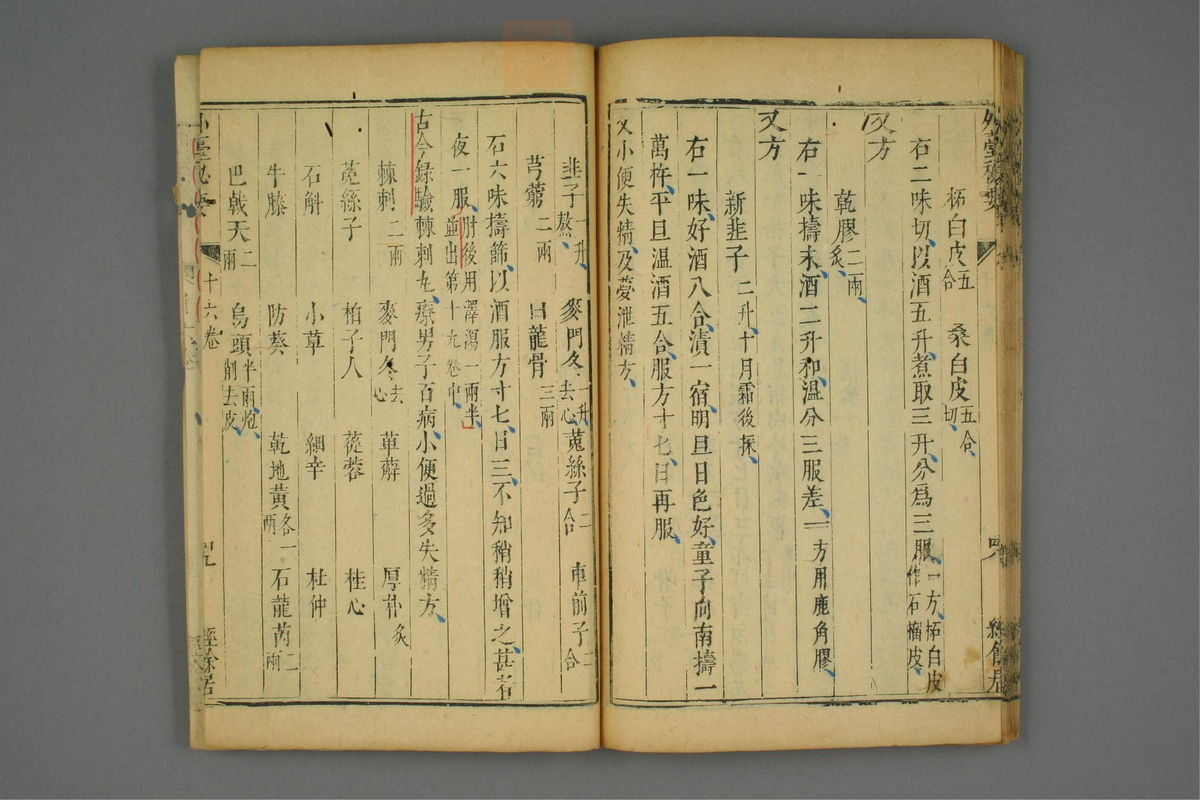 柘白皮五合 桑白皮五合切
右二味切以酒五升煮取三升分爲三服一方柘白皮作石榴皮
又方
乾膠二兩炙
右一味擣末酒二升和溫分三服差一方用鹿角膠
又方
新韭子二升十月霜後採
右一味好酒八合漬一宿明旦日色好童子向南擣一
萬杵平旦溫酒五合服方寸匕日再服
又小便失精及夢泄精方
韭子一升熬 麥門冬一升去心 菟絲子二合 車前子二合
芎藭二兩 白龍骨三兩
石六味擣篩以酒服方寸匕日三不知稍稍增之甚者
夜一服肘後用澤瀉一兩半並出第十九卷中
古今錄驗棘刺丸療男子百病小便過多失精方
棘刺二兩 麥門冬去心 萆薢 厚朴炙
菟絲子 柏子人 蓯蓉 桂心
石斛 小草 細辛 杜仲
牛膝 防葵 乾地黃各一兩 石龍芮二兩
巴戟天二兩 烏頭半兩炮削去皮
十六卷
經餘居